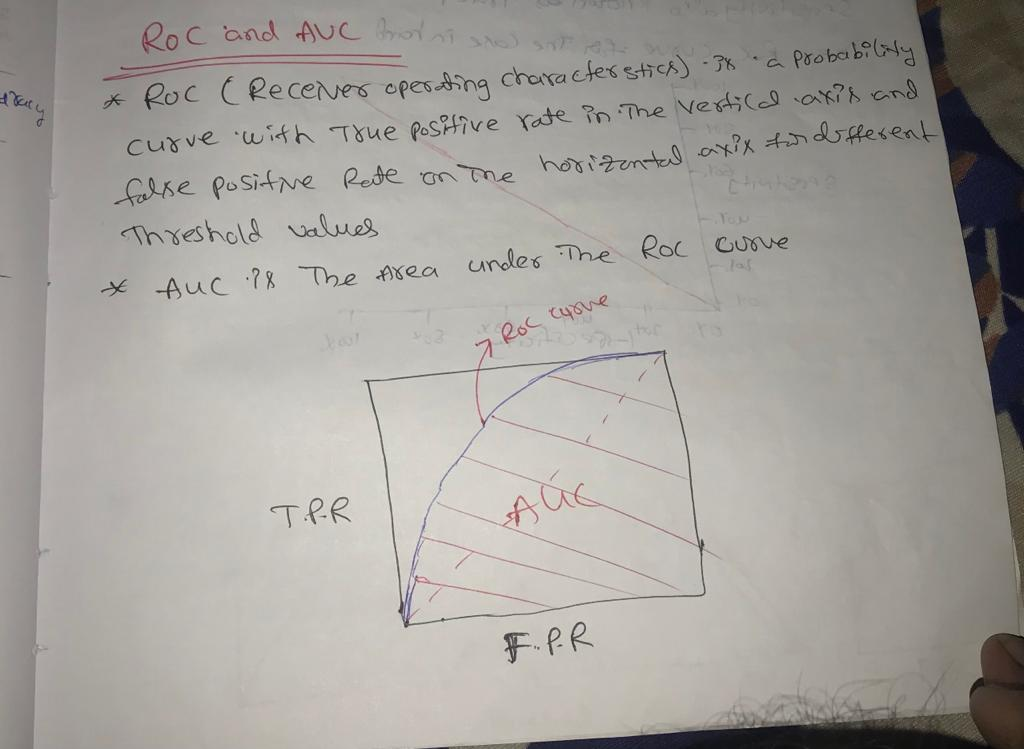 ROC and AUC
* ROC (Receiver operating characterstics) is a probability
curve with True positive rate in The vertical axis and
false positive Rate on The horizontal axis for different
Threshold values
* AUC is The Area under The ROC curve
ROC curve
AUC
T.P.R
F.P.R